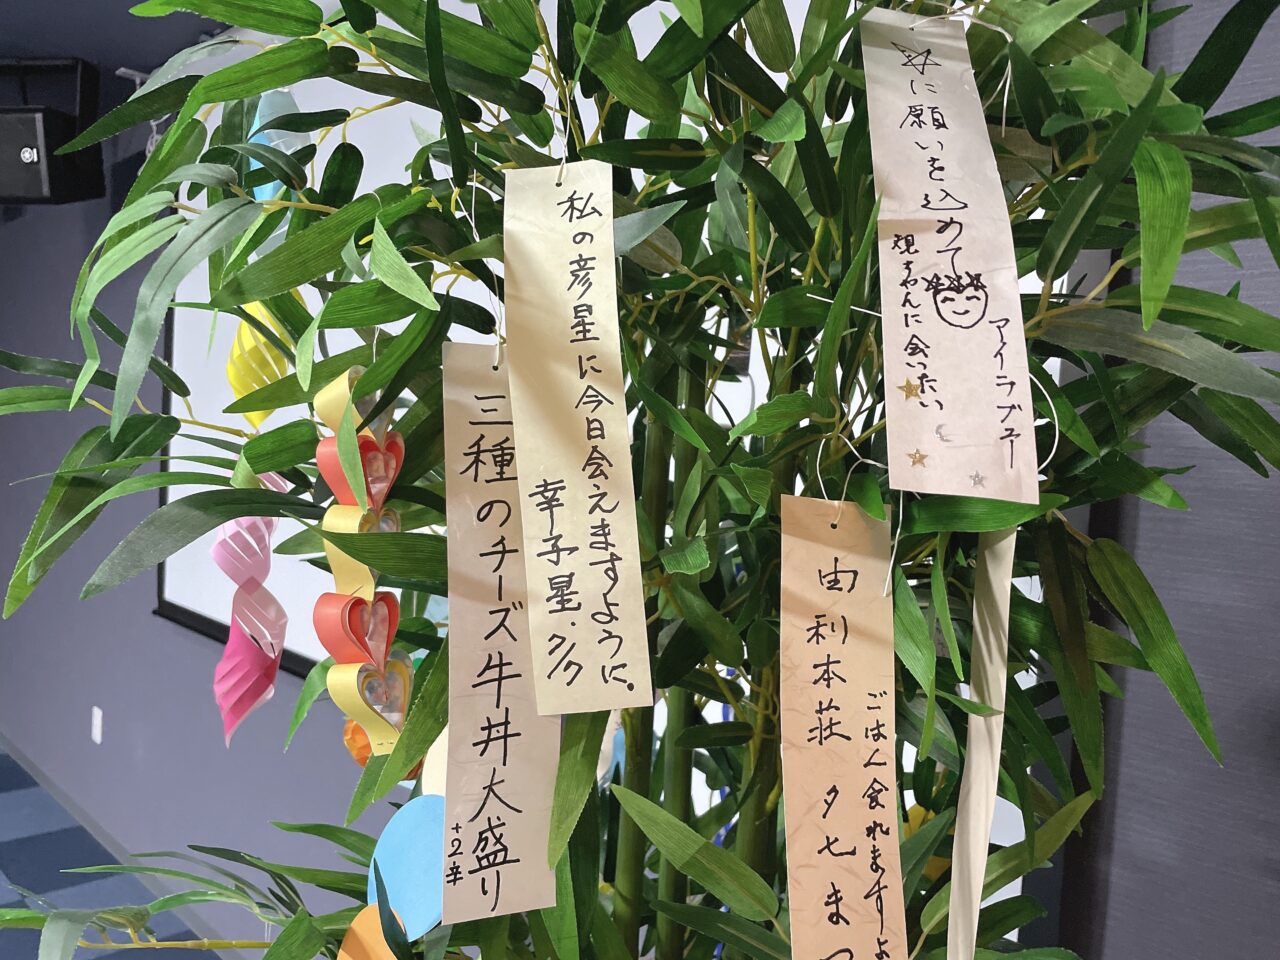 ☆に願いを込めて
アイラブユー
ちゃんに会いたい
私の彦星に今日会えますように。
幸子星.
三種のチーズ牛丼大盛り
+2辛
ごはん食れますよ
由利本荘 夕七まつ